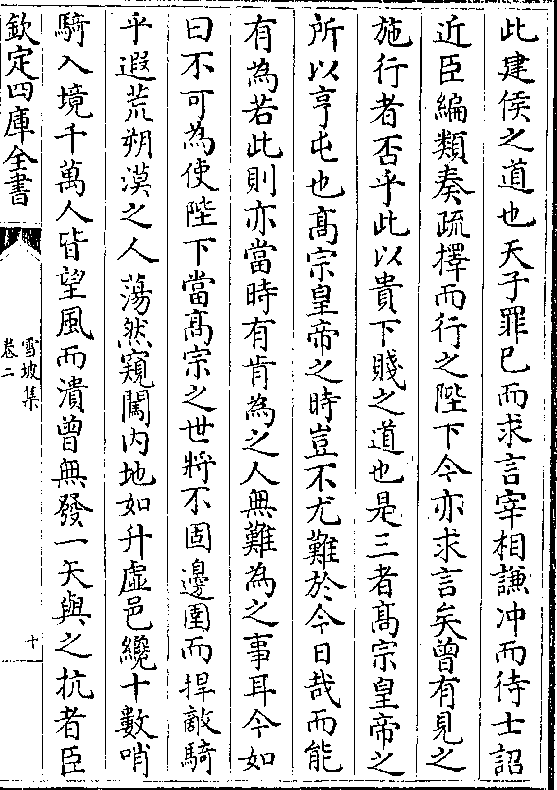 此建侯之道也天子罪已而求言宰相謙冲而待士詔
近臣編類奏疏擇而行之陛下今亦求言矣曾有見之
施行者否乎此以貴下賤之道也是三者髙宗皇帝之
所以亨屯也髙宗皇帝之時豈不尤難於今日哉而能
有為若此則亦當時有肯為之人無難為之事耳今如
曰不可為使陛下當髙宗之世將不固邊圉而捍敵騎
乎遐荒朔漠之人蕩然窺闖内地如升虛邑纔十數哨
騎入境千萬人皆望風而潰曾無發一矢與之抗者臣
欽定四庫全書
雪坡集
卷二
十